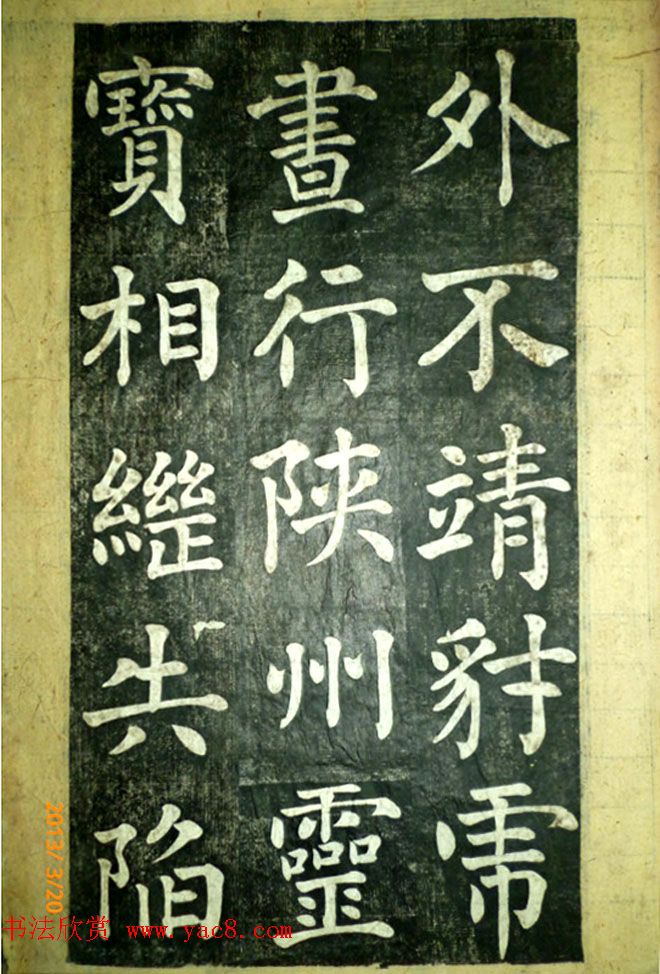 外不靖豺虎
晝行陕州靈
寶相繼失陷
2013/3/20
书法欣赏 www.yac8.com